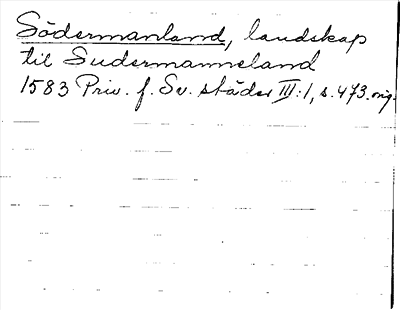 Södermanland, landskap
til Sudermanneland
1583 Priv. f. Sv. städer III:1, s. 473. orig.